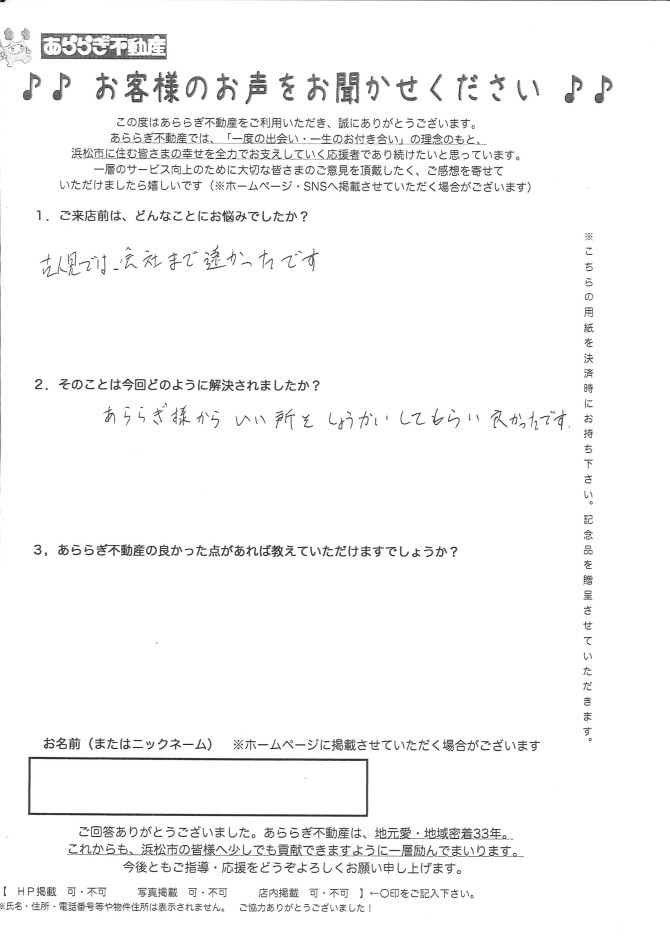 あららぎ不動産
♪♪ お客様のお声をお聞かせください ♪♪
この度はあららぎ不動産をご利用いただき、誠にありがとうございます。
あららぎ不動産では、「一度の出会い・一生のお付き合い」の理念のもと、
浜松市に住む皆さまの幸せを全力でお支えしていく応援者であり続けたいと思っています。
一層のサービス向上のために大切な皆さまのご意見を頂戴したく、ご感想を寄せて
いただけましたら嬉しいです（※ホームページ・SNSへ掲載させていただく場合がございます）
１．ご来店前は、どんなことにお悩みでしたか？
古人見では、会社まで遠かったです
２．そのことは今回どのように解決されましたか？
あららぎ様から いい所を しょうかいしてもらい 良かったです.
３，あららぎ不動産の良かった点があれば教えていただけますでしょうか？
※こちらの用紙を決済時にお持ち下さい。記念品を贈呈させていただきます。
お名前（またはニックネーム） ※ホームページに掲載させていただく場合がございます
ご回答ありがとうございました。あららぎ不動産は、地元愛・地域密着33年。
これからも、浜松市の皆様へ少しでも貢献できますように一層励んでまいります。
今後ともご指導・応援をどうぞよろしくお願い申し上げます。
【 ＨＰ掲載 可・不可 写真掲載 可・不可 店内掲載 可・不可 】←〇印をご記入下さい。
※氏名・住所・電話番号等や物件住所は表示されません。 ご協力ありがとうございました！